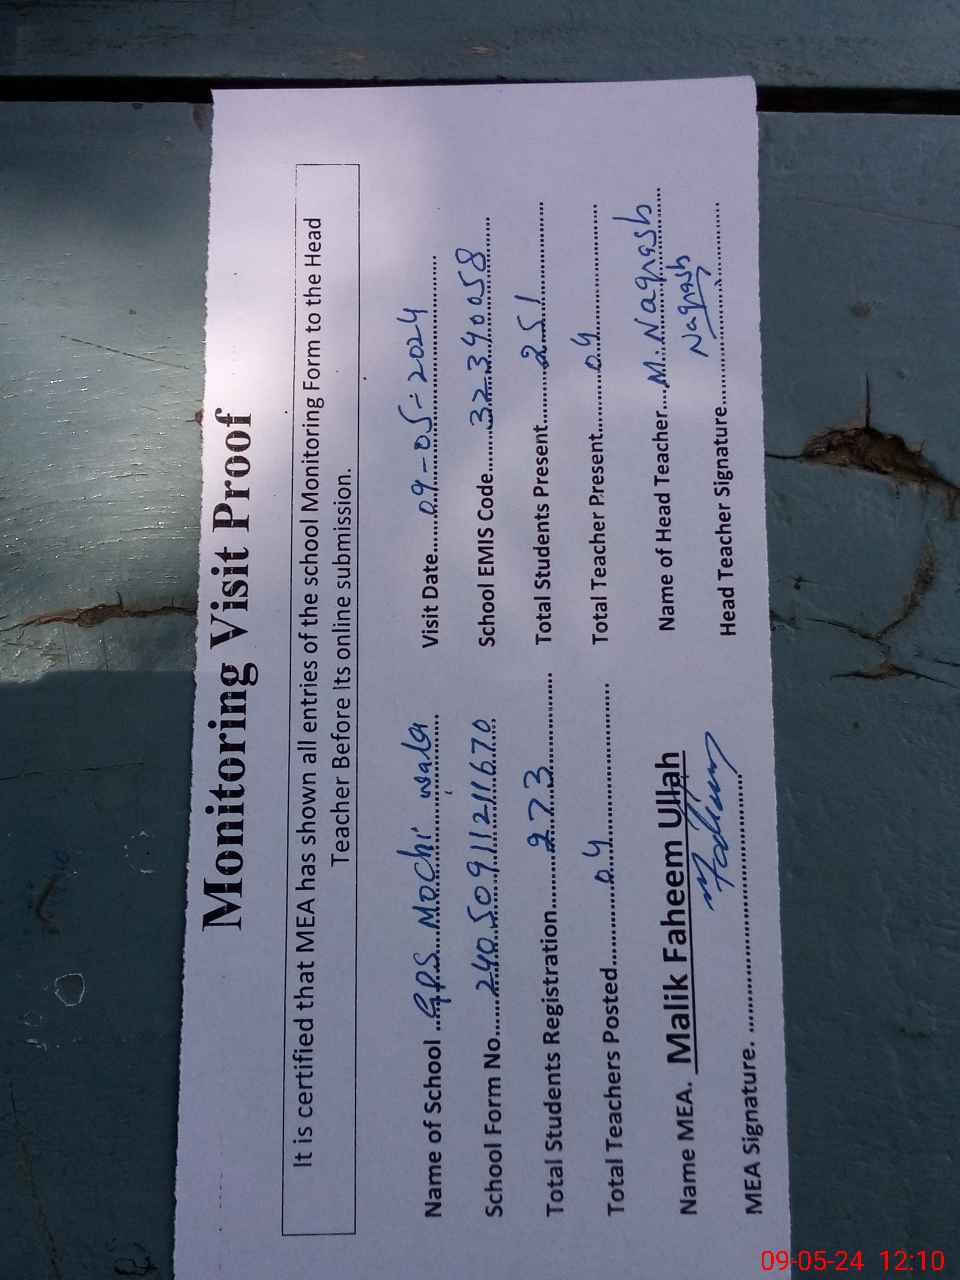 Monitoring Visit Proof
It is certified that MEA has shown all entries of the school Monitoring Form to the Head
Teacher Before Its online submission.
Name of School ....GPS Mochi wala....
Visit Date....09-05-2024....
School Form No....240509112111670....
School EMIS Code....32340058....
Total Students Registration....273....
Total Students Present....251....
Total Teachers Posted....04....
Total Teacher Present....04....
Name MEA. Malik Faheem Ullah
Name of Head Teacher....M. Naqash....
MEA Signature. ....
Head Teacher Signature....Naqash....
09-05-24 12:10